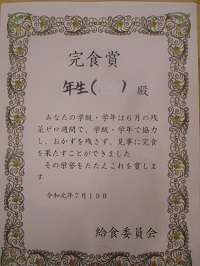 完食賞
年生( ) 殿
あなたの学級・学年は6月の残
菜ゼロ週間で、学級・学年で協力
し、おかずを残さず、見事に完食
を果たすことができました
その栄誉をたたえこれを賞しま
す
令和元年7月19日
給食委員会